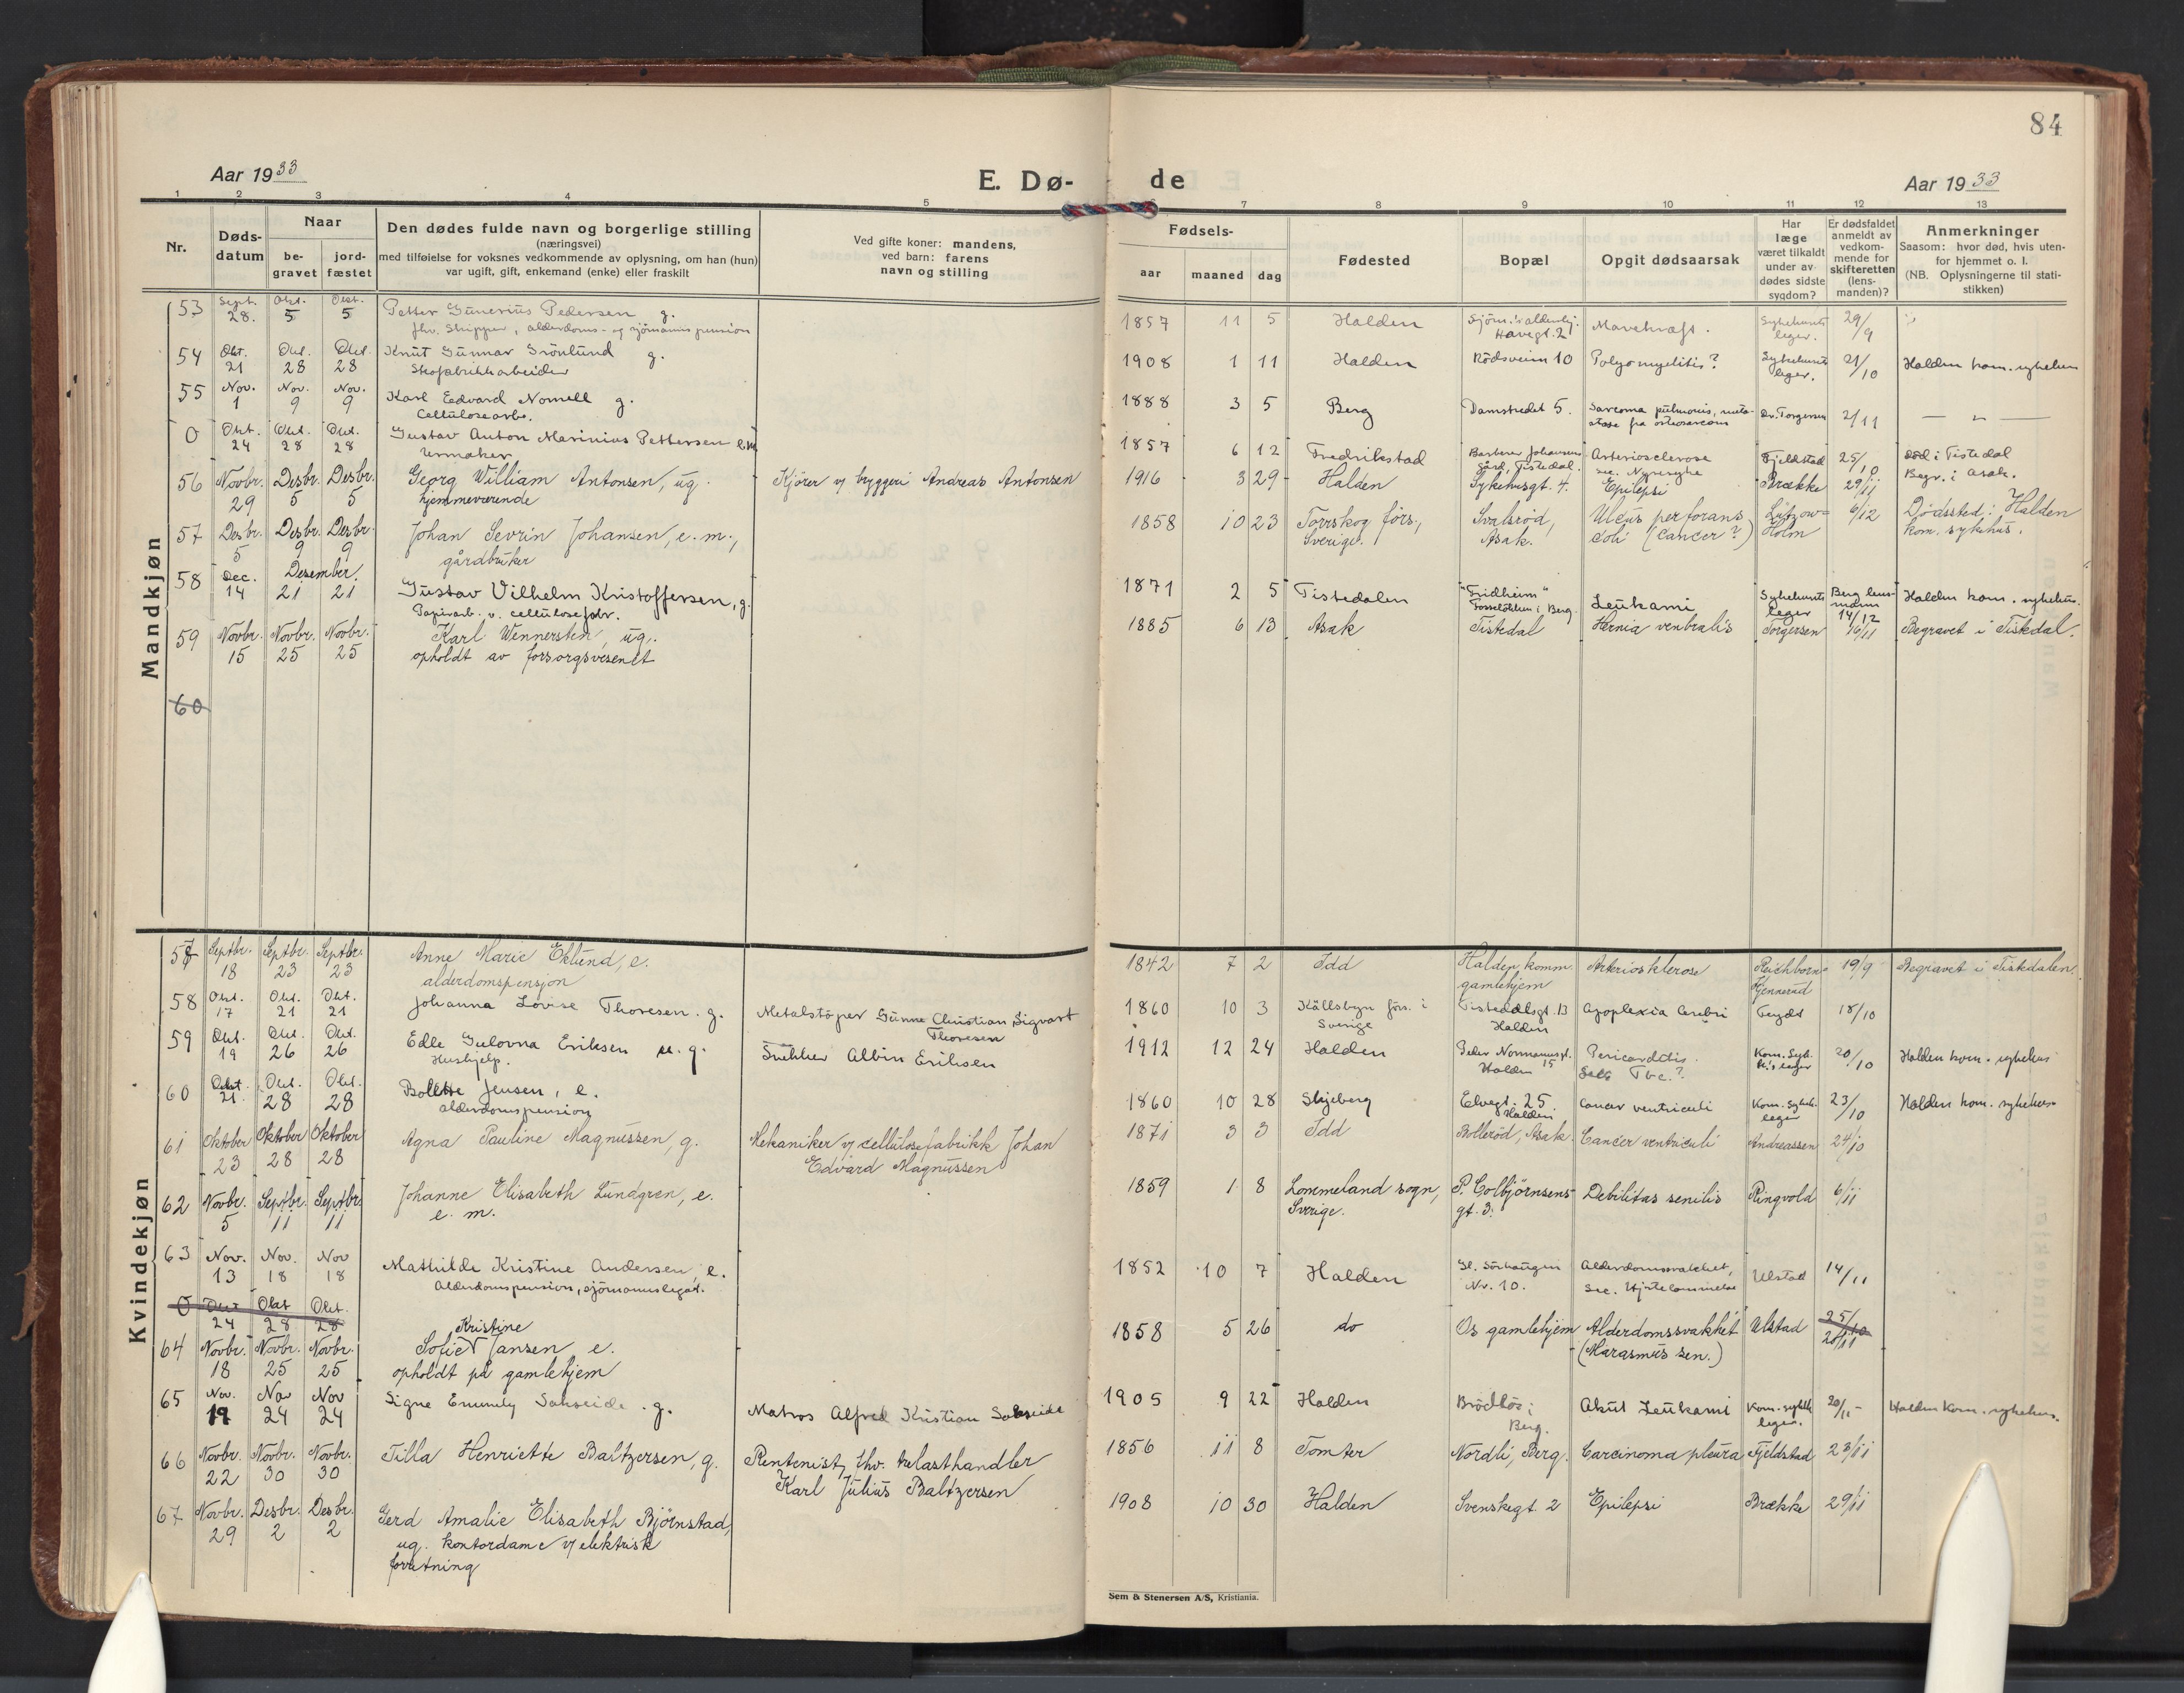 84
Aar 1933
E. Dø-
de
Aar 1933
1 2 3 4 5 7 8 9 10 11 12 13
Nr.
Døds-
datum
Naar
be-
gravet
jord-
fæstet
Den dødes fulde navn og borgerlige stilling
(næringsvei)
med tilføielse for voksnes vedkommende av oplysning, om han (hun)
var ugift, gift, enkemand (enke) eller fraskilt
Ved gifte koner: mandens,
ved barn: farens
navn og stilling
Fødsels-
aar maaned dag
Fødested
Bopæl
Opgit dødsaarsak
Har
læge
været tilkaldt
under av-
dødes sidste
sygdom?
Er dødsfaldet
anmeldt av
vedkom-
mende for
skifteretten
(lens-
manden)?
Anmerkninger
Saasom: hvor død, hvis uten-
for hjemmet o. l.
(NB. Oplysningerne til stati-
stikken)
Mandkjøn
53 Sept. Okt. Okt. Petter Gunerius Pedersen g. 1857 11 5 Halden Sjøm.'s alderhj. Mavekræft. Sykehusets 29/9
28. 5 5 fhv. Skipper, alderdoms- og sjömanns pension Havegt. 2 leger.
54 Okt. Okt. Okt. Knut Gunnar Grönlund g. 1908 1 11 Halden Rödsveien 10 Polyomyelitis? Sykehusets 21/10 Halden kom. sykehus
21 28 28 Skofabrikkarbeider leger.
55 Nov. Nov. Nov. Karl Edvard Nomell g. 1888 3 5 Berg Damstredet 5. Sarcoma pulmonis, meta- Dr. Torgersen 2/11 — " —
1 9 9 Cellulosearb. stase fra osteosarcom
0 Okt. Okt. Okt. Gustav Anton Marinius Pettersen e.m. 1857 6 12 Fredrikstad Barberer Johansens Arteriosclerose Fjeldstad 25/10 död i Tistedal
24 28 28 Urmaker gård, Tistedal. sec. Nyresyke Begr. i Asak.
56 Novbr. Desbr. Desbr. Georg William Antonsen, ug. Kjörer v/ bryggeri Andreas Antonsen 1916 3 29 Halden Sykehusgt. 4. Epilepsi Brække 29/11
29 5 5 hjemmeværende
57 Desbr. Desbr. Desbr. Johan Sevrin Johansen, e. m., 1858 10 23 Torrskog förs., Svalsröd, Ulcus perforans Lützow- 6/12 Dödssted: Halden
5 9 9 gårdbruker Sverige. Asak. coli (cancer?) Holm kom. sykehus.
58 Dec. Desember. Gustav Vilhelm Kristoffersen, g. 1871 2 5 Tistedalen "Fridheim" Leukami Sykehusets Berg lens- Halden kom. sykehus.
14 21 21 Papirarb. v. cellulosefabr. Fosselökken i Berg. leger mann 14/12
59 Novbr. Novbr. Novbr. Karl Wennersten, ug. 1885 6 13 Asak Tistedal Hernia ventralis Torgersen 16/11 Begravet i Tistedal.
15 25 25 opholdt av forsorgsvesenet
60
Kvindekjøn
57 Septbr. Septbr. Septbr. Anne Marie Eklund, e. 1842 7 2 Idd Halden komm. Arteriosklerose Reichborn- 19/9 Begravet i Tistedalen.
18 23 23 alderdomspensjon gamlehjem Kjennerud
58 Okt. Okt. Okt. Johanna Lovise Thoresen. g. Metalstöper Gunne Christian Sigvart 1860 10 3 Källsbyn förs. i Tistedalsgt. 13 Apoplexia Cerebri Feydt 18/10
17 21 21 Thoresen Sverige Halden
59 Okt. Okt. Okt. Edle Gulovna Eriksen g. Snekker Albin Eriksen 1912 12 24 Halden Peder Normannsgt. Pericarditis. Kom. Syk- 20/10 Halden kom. sykehus
19 26 26 Hushjelp. 15 Halden Tbc.? h.'s leger
60 Okt. Okt. Okt. Bolette Jensen, e. 1860 10 28 Skjeberg Elvegt. 25 Cancer ventriculi Kom. sykeh. 23/10 Halden kom. sykehus
21. 28 28 alderdomspension Halden leger
61 Oktober Oktober Oktober Agna Pauline Magnussen, g. Mekaniker v/ cellulosefabrikk Johan 1871 3 3 Idd Bolleröd, Asak. Cancer ventriculi Andreassen 24/10
23 28 28 Edvard Magnussen
62 Novbr. Septbr. Septbr. Johanne Elisabeth Lundgren, e. 1859 1 8 Lommeland sogn, P. Colbjörnsens- Debilitas senilis Ringvold 6/11
5 11 11 e. m. Sverige. gt. 3.
63 Nov. Nov. Nov Mathilde Kristine Andersen, e. 1852 10 7 Halden Gl. Sörhaugen Alderdomssvakhet, Ulstad 14/11
13 18 18 Alderdomspension, sjömannslegat. Nr. 10. sec. Hjertelammelse
0 Okt Okt Okt.
24 28 28
64 Novbr. Novbr. Novbr. Sofie Kristine Jansen e. 1858 5 26 do Os gamlehjem Alderdomssvakhet Ulstad 25/10
18 25 25 opholdt på gamlehjem (Marasmus sen.) 20/11
65 Nov. Nov Nov Signe Emmely Sakseide. g. Matros Alfred Kristian Sakseide 1905 9 22 Halden Brödlös i Akut Leukami Kom. sykeh. 20/11 Halden Kom. sykehus.
19 24 24 Berg. leger.
66 Novbr. Novbr. Novbr. Tilla Henriette Baltzersen, g. Rentenist, fhv. trelasthandler 1856 11 8 Tomter Nordli, Berg. Carcinoma pleura Fjeldstad 23/11
22 30 30 Karl Julius Baltzersen
67 Novbr. Desbr. Desbr. Gerd Amalie Elisabeth Björnstad, 1908 10 30 Halden Svenskegt 2 Epilepsi Brække 29/11
29 2 2 ug. kontordame v/ elektrisk
forretning
Sem & Stenersen A/S, Kristiania.